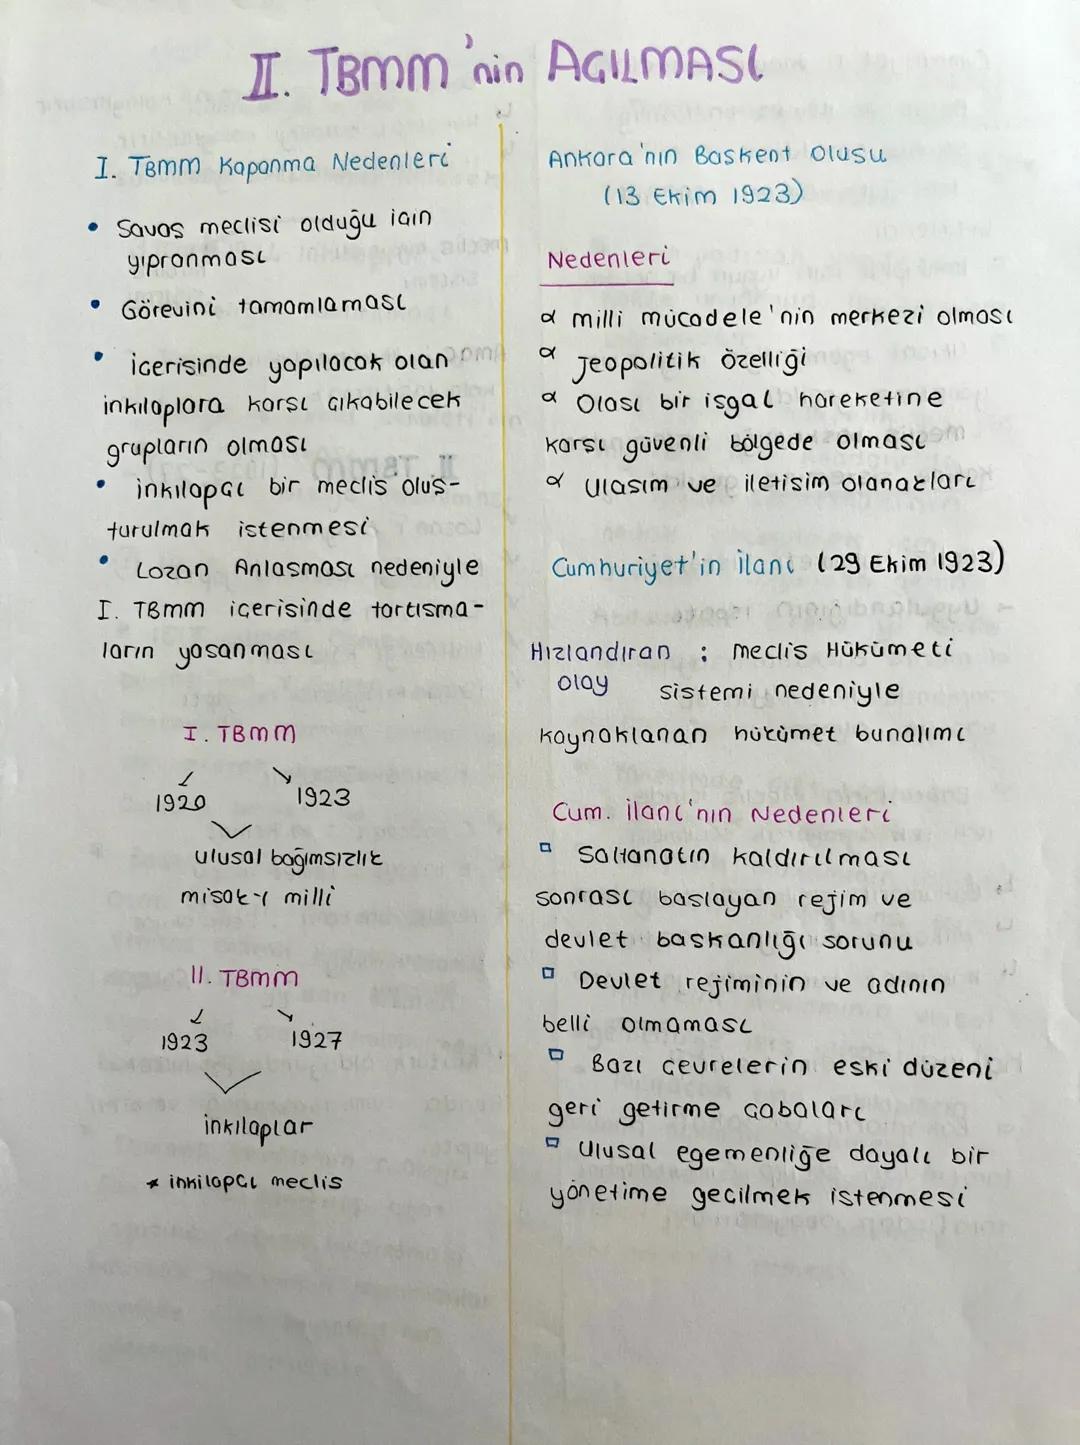 II. TBMM'nin AÇILMASI
I. TBMM Kapanma Nedenleri
• Savaş meclisi olduğu için
yıpranması
• Görevini tamamlaması
• İçerisinde yapılacak olan
inkılaplara karşı çıkabilecek
grupların olması
• inkılapçı bir meclis oluş-
turulmak istenmesi
• Lozan Anlaşması nedeniyle
I. TBMM içerisinde tartışma-
ların yaşanması
I. TBMM
1920 1923
ulusal bağımsızlık
misak-ı milli
II. TBMM
1923 1927
inkılaplar
* inkilapçı meclis
Ankara'nın Başkent Oluşu
(13 Ekim 1923)
Nedenleri
α milli mücadele'nin merkezi olması
α Jeopolitik özelliği
α Olası bir işgal hareketine
karşı güvenli bölgede olması
α Ulaşım ve iletişim olanakları
Cumhuriyet'in ilanı (29 Ekim 1923)
Hızlandıran : meclis Hükümeti
olay sistemi nedeniyle
kaynaklanan hükümet bunalımı
Cum. ilanı'nın Nedenleri
▫ Saltanatın kaldırılması
sonrası başlayan rejim ve
devlet başkanlığı sorunu
▫ Devlet rejiminin ve adının
belli olmaması
▫ Bazı çevrelerin eski düzeni
geri getirme çabaları
▫ Ulusal egemenliğe dayalı bir
yönetime geçilmek istenmesi